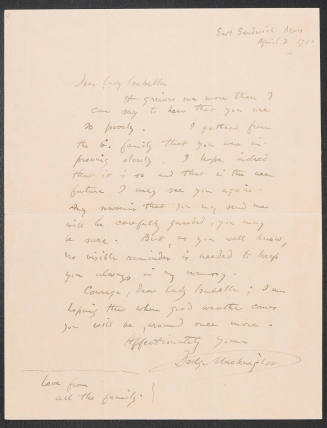 East Sandwich Mass
April 2
Dear Lady Isabella
It grieves me more than I
can say to hear that you are
so poorly. I gathered from
the G. family that you were im-
proving slowly. I hope indeed
that it is so and that in the near
future I may see you again.
Any souvenir that you may send me
will be carefully guarded, you may
be sure. But, as you well know,
no visible reminder is needed to keep
you always in my memory.
Courage, dear Lady Isabella; I am
hoping that when good weather comes
you will be around once more.
Affectionately Yours
Dodge Macknight
Love from
all the family.